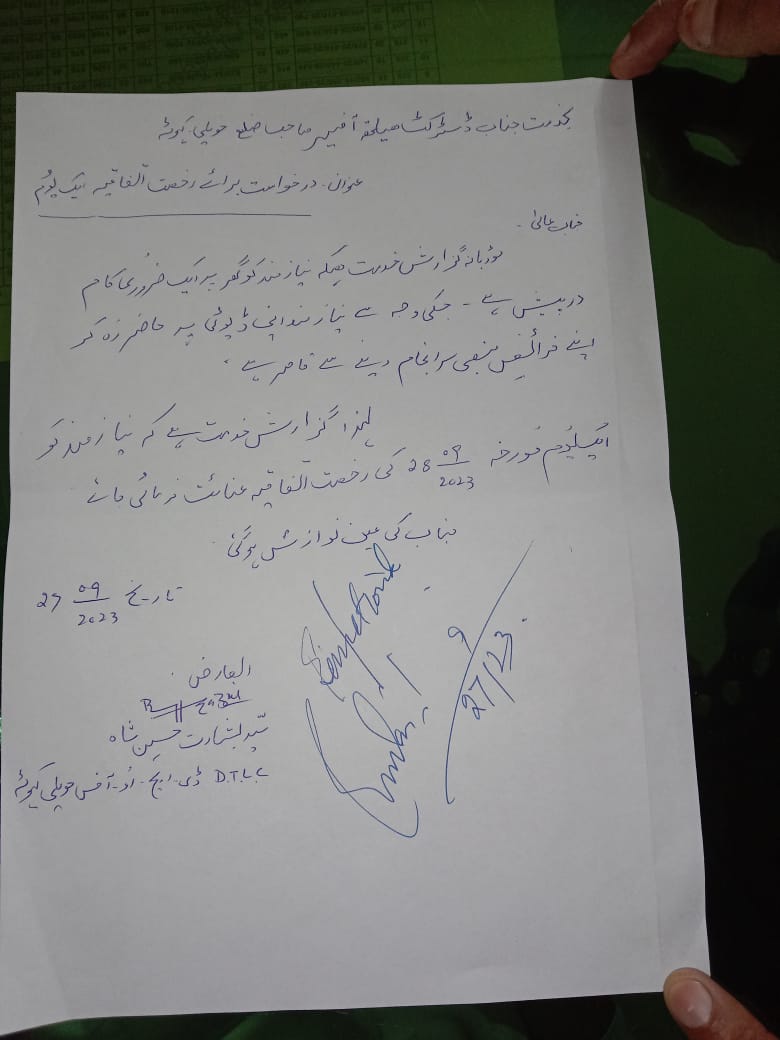 بخدمت جناب ڈسٹرکٹ ہیلتھ آفیسر صاحب ضلع حویلی کہوٹہ
عنوان۔ درخواست برائے رخصت اتفاقیہ ایک یوم
جناب عالیٰ۔
مؤدبانہ گزارش خدمت ہیکہ نیاز مند کو گھر پر ایک ضروری کام
درپیش ہے۔ جسکی وجہ سے نیاز مند اپنی ڈیوٹی پر حاضر رہ کر
اپنے فرائیض منصبی سرانجام دینے سے قاصر ہے۔
لہذا گزارش خدمت ہے کہ نیاز مند کو
ایک یوم مورخہ 28 09/2023 کی رخصت اتفاقیہ عنائت فرمائی جائے
جناب کی عین نوازش ہوگی
تاریخ 27 09/2023
العارض
سید بشارت حسین شاہ
D.T.L.C ڈی۔ایچ۔او۔آفس حویلی کہوٹہ
27/9/23